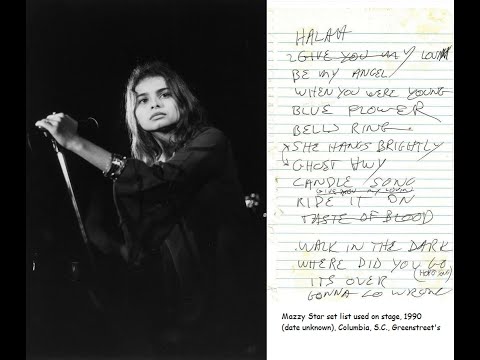 HALAH
2 GIVE YOU MY LOVIN
BE MY ANGEL
WHEN YOU WERE YOUNG
BLUE FLOWER
BELL RING
SHE HANGS BRIGHTLY
GHOST HWY
CANDLE SONG
GIVE YOU MY LOVIN
RIDE IT ON
TASTE OF BLOOD
WALK IN THE DARK
WHERE DID YOU GO
(HOPE SONG)
ITS OVER
GONNA GO WRONG
Mazzy Star set list used on stage, 1990
(date unknown), Columbia, S.C., Greenstreet's